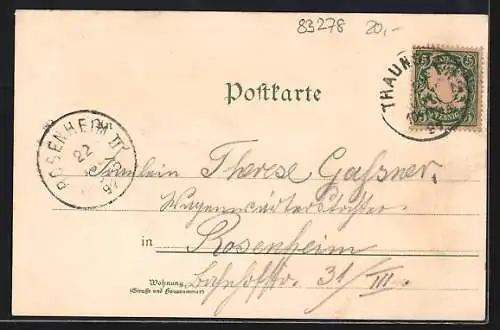 83278 20,-
Postkarte
THAUN
BAYERN 5
PFENNIG
ROSENHEIM II
22
97
Fräulein Therese Gaßner,
Wagenwärterstochter
in Rosenheim
Bahnhofstr. 31/III.
Wohnung
(Straße und Hausnummer)